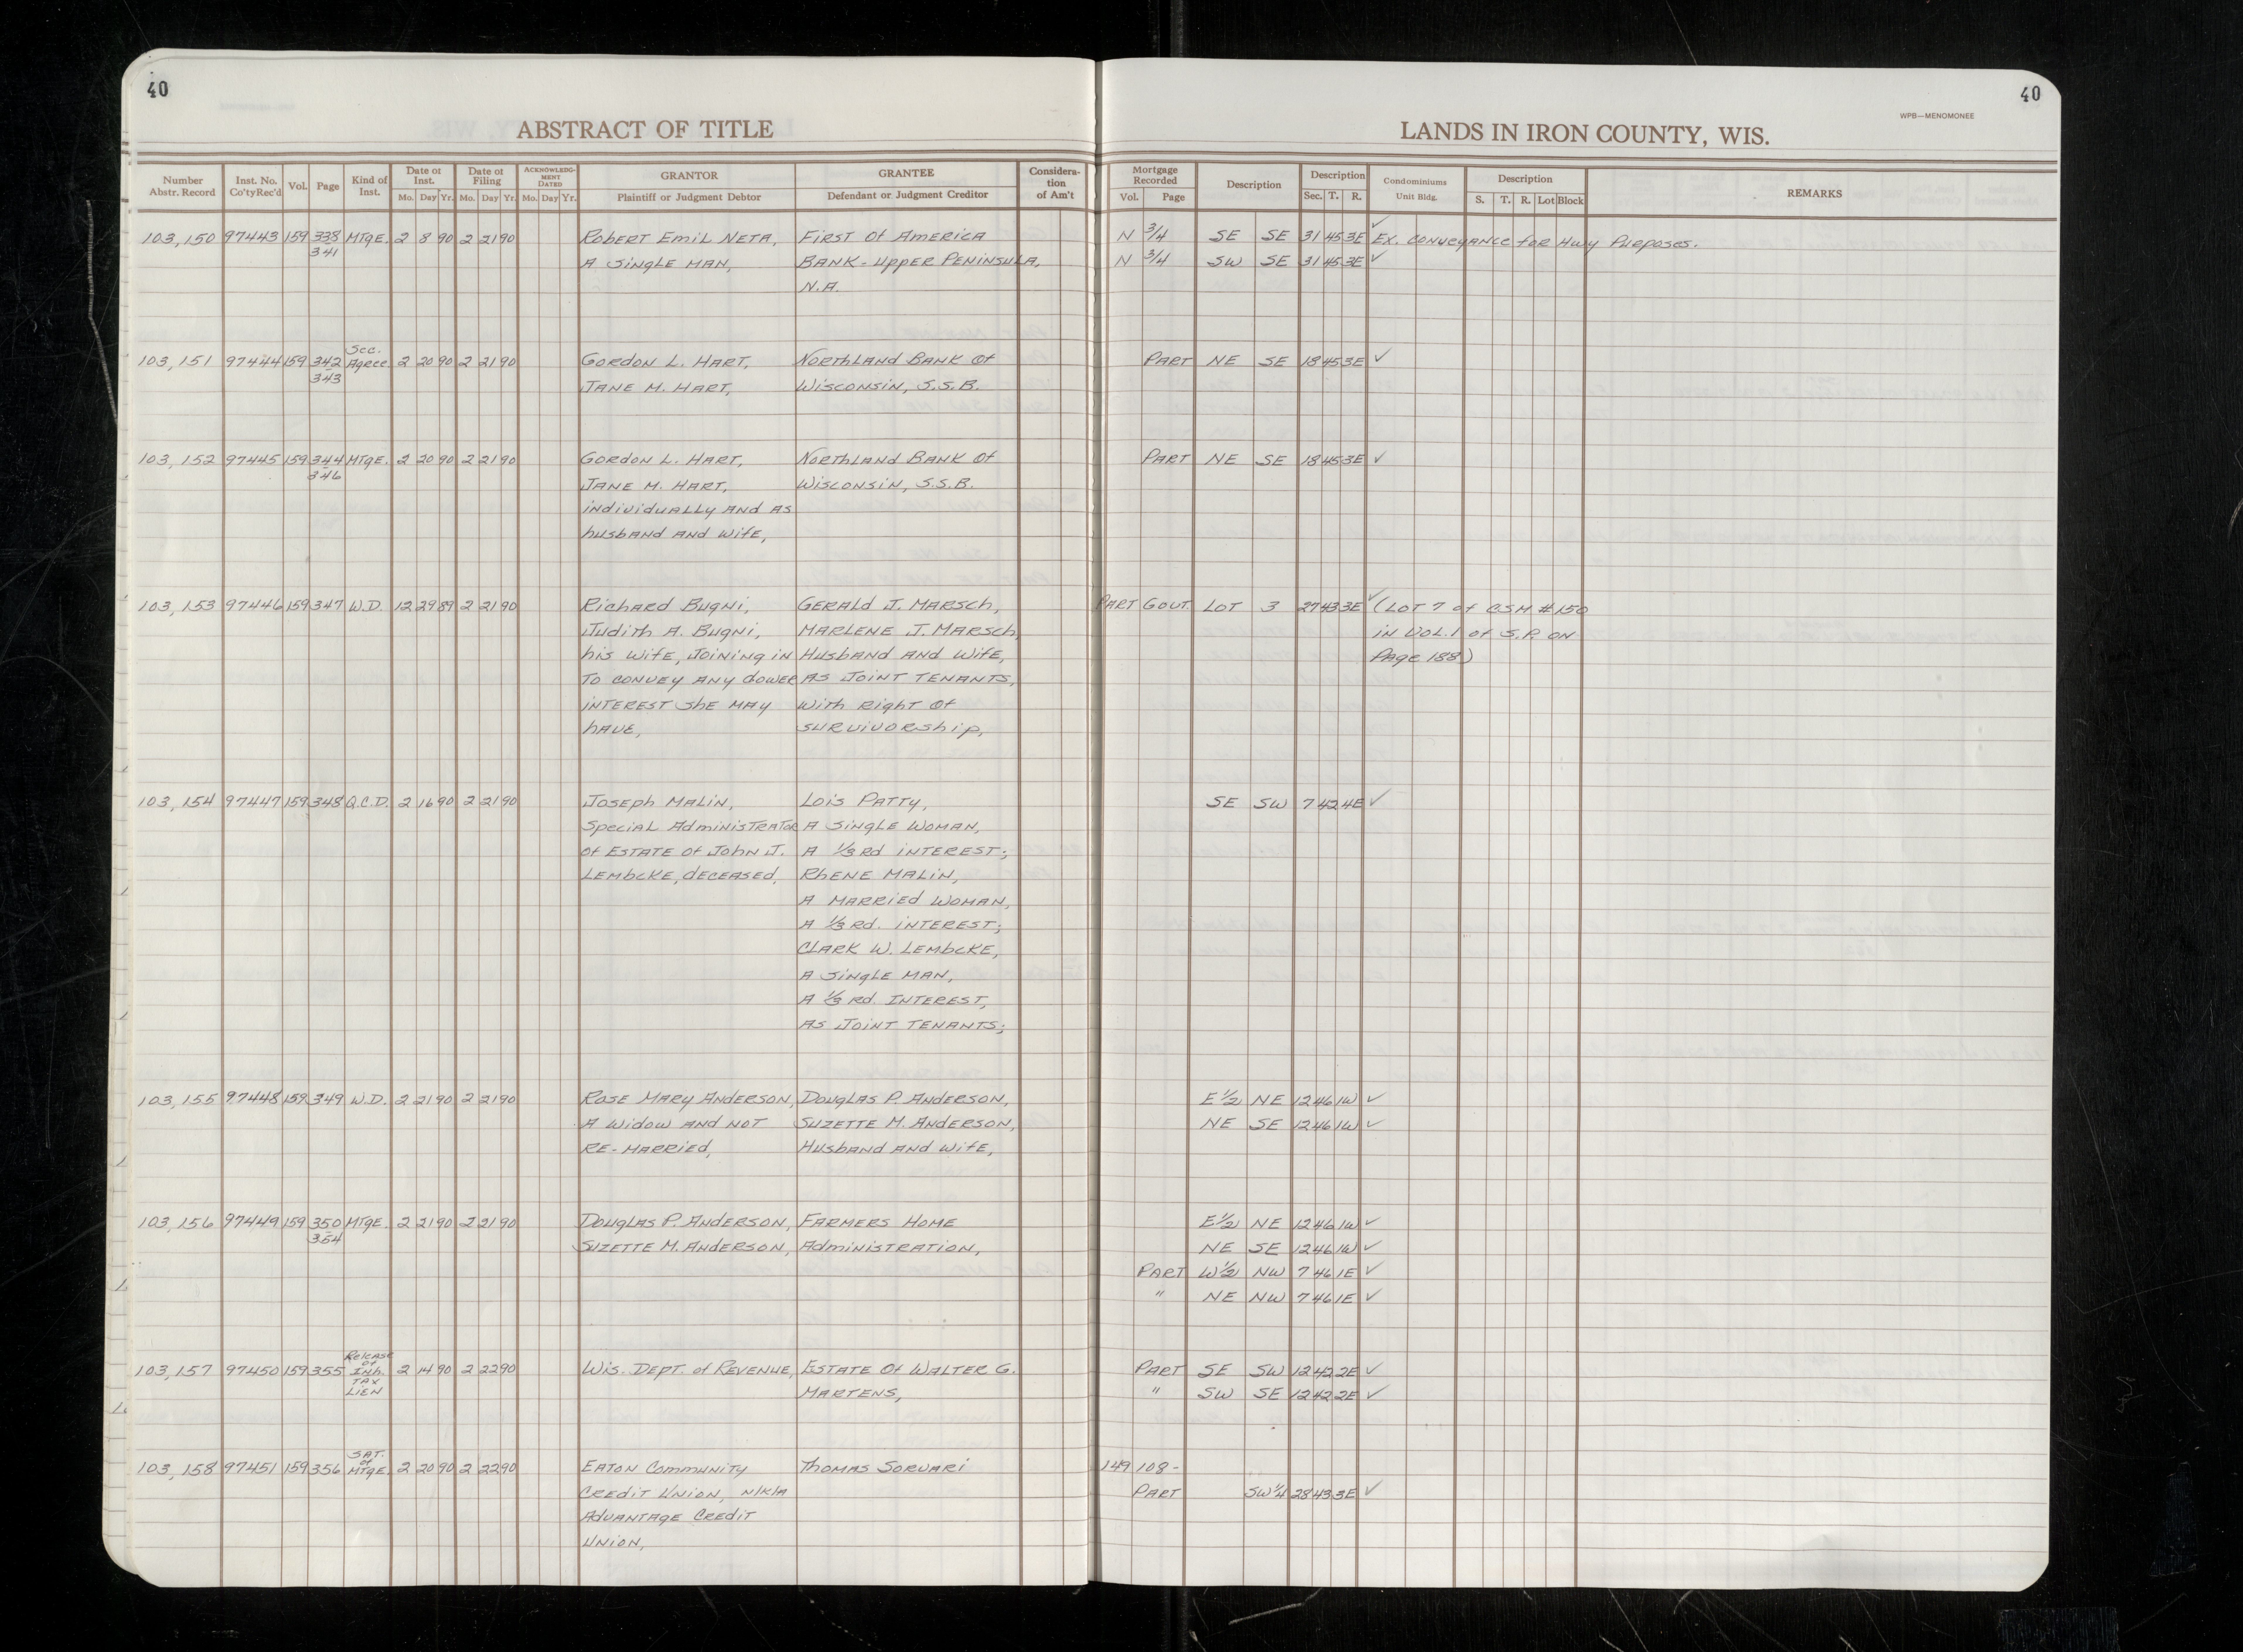 40
40
WPB—MENOMONEE
ABSTRACT OF TITLE
LANDS IN IRON COUNTY, WIS.
Number Abstr. Record | Inst. No. Co'ty Rec'd | Vol. | Page | Kind of Inst. | Date of Inst. Mo. Day Yr. | Date of Filing Mo. Day Yr. | ACKNOWLEDGMENT DATED Mo. Day Yr. | GRANTOR Plaintiff or Judgment Debtor | GRANTEE Defendant or Judgment Creditor | Consideration of Am't | Mortgage Recorded Vol. Page | Description | Description Sec. T. R. | Condominiums Unit Bldg. | Description S. T. R. Lot Block | REMARKS
103,150 97443 159 338 MTGE. 2 8 90 2 21 90 Robert Emil Neta, First of America N 3/4 SE SE 31 45 3E ✓ Ex. conveyance for Hwy Purposes.
341 A single man, Bank - Upper Peninsula, N 3/4 SW SE 31 45 3E ✓
N.A.
Sec.
103,151 97444 159 342 Agree. 2 20 90 2 21 90 Gordon L. Hart, Northland Bank of Part NE SE 18 45 3E ✓
343 Jane M. Hart, Wisconsin, S.S.B.
103,152 97445 159 344 MTGE. 2 20 90 2 21 90 Gordon L. Hart, Northland Bank of Part NE SE 18 45 3E ✓
346 Jane M. Hart, Wisconsin, S.S.B.
individually and as
husband and wife,
103,153 97446 159 347 W.D. 12 29 89 2 21 90 Richard Bugni, Gerald J. Marsch, Part Gout. Lot 3 27 43 3E ✓ (Lot 7 of C.S.M #150
Judith A. Bugni, Marlene J. Marsch, in Vol. 1 of S.P. on
his wife, joining in Husband and wife, Page 188)
to convey any dower as joint tenants,
interest she may with right of
have, survivorship,
103,154 97447 159 348 Q.C.D. 2 16 90 2 21 90 Joseph Malin, Lois Patty, SE SW 7 42 4E ✓
Special Administrator A single woman,
of Estate of John J. A 1/3 rd interest;
Lembcke, deceased, Rhene Malin,
A married woman,
A 1/3 rd. interest;
Clark W. Lembcke,
A single man,
A 1/3 rd. interest,
as joint tenants;
103,155 97448 159 349 W.D. 2 21 90 2 21 90 Rose Mary Anderson, Douglas P. Anderson, E 1/2 NE 12 46 1W ✓
A widow and not Suzette M. Anderson, NE SE 12 46 1W ✓
re-married, Husband and wife,
103,156 97449 159 350 MTGE. 2 21 90 2 21 90 Douglas P. Anderson, Farmers Home E 1/2 NE 12 46 1W ✓
354 Suzette M. Anderson, Administration, NE SE 12 46 1W ✓
Part W 1/2 NW 7 46 1E ✓
" NE NW 7 46 1E ✓
Release
of
103,157 97450 159 355 Inh. 2 14 90 2 22 90 Wis. Dept. of Revenue, Estate of Walter G. Part SE SW 12 42 2E ✓
Tax
Lien Martens, " SW SE 12 42 2E ✓
Sat.
of
103,158 97451 159 356 MTGE. 2 20 90 2 22 90 Eaton Community Thomas Sorvari 149 108 -
Credit Union, n/k/a Part SW 1/4 28 43 3E ✓
Advantage Credit
Union,